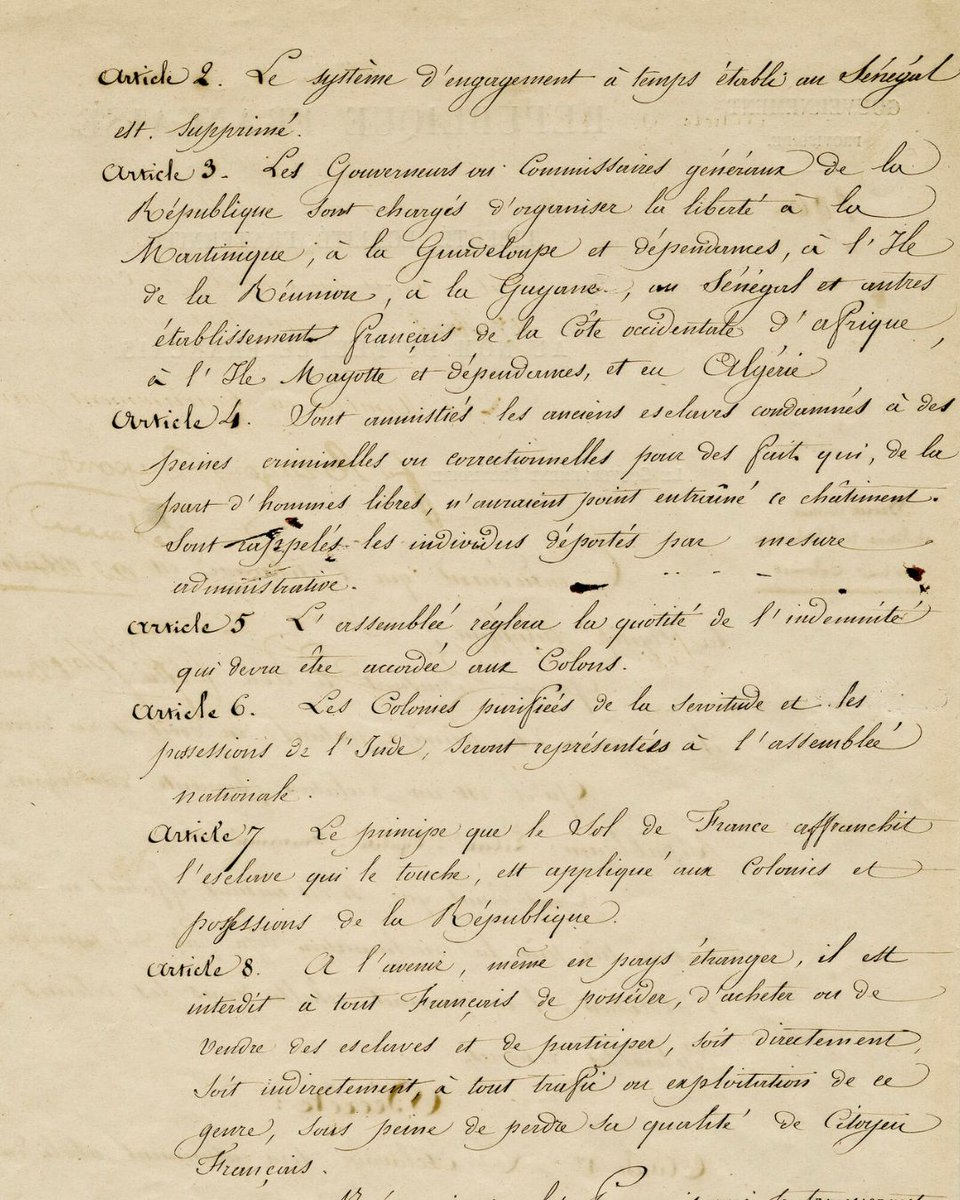 Article 2. Le système d'engagement à temps établi au Sénégal
est. supprimé.
Article 3. Les Gouverneurs ou Commissaires généraux de la
République sont chargés d'organiser la liberté à la
Martinique, à la Guadeloupe et dépendances, à l'Ile
de la Réunion, à la Guyane, au Sénégal et autres
établissements français de la Côte occidentale d'afrique,
à l'Ile Mayotte et dépendances, et en Algérie
Article 4. Sont amnistiés les anciens esclaves condamnés à des
peines criminelles ou correctionnelles pour des faits qui, de la
part d'hommes libres, n'auraient point entraîné ce châtiment.
Sont rappelés les individus déportés par mesure
administrative.
Article 5 L'assemblée réglera la quotité de l'indemnité
qui devra être accordée aux Colons.
Article 6. Les Colonies purifiées de la servitude et les
possessions de l'Inde, seront représentées à l'assemblée
nationale.
Article 7 Le principe que le Sol de France affranchit
l'esclave qui le touche, est appliqué aux Colonies et
possessions de la République.
Article 8. A l'avenir, même en pays étranger, il est
interdit à tout Français de posséder, d'acheter ou de
vendre des esclaves et de participer, soit directement,
soit indirectement, à tout trafic ou exploitation de ce
genre, sous peine de perdre sa qualité de Citoyen
Français.